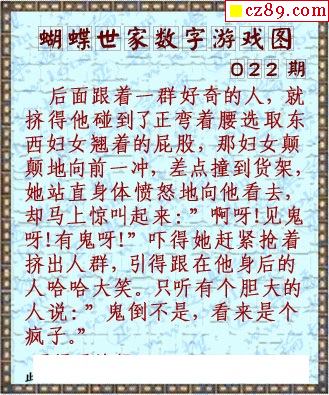 cz89.com
蝴蝶世家数字游戏图
022期
后面跟着一群好奇的人，就
挤得他碰到了正弯着腰选取东
西妇女翘着的屁股，那妇女颠
颠地向前一冲，差点撞到货架，
她站直身体愤怒地向他看去，
却马上惊叫起来：”啊呀！见鬼
呀！有鬼呀！”吓得她赶紧抢着
挤出人群，引得跟在他身后的
人哈哈大笑。只听有个胆大的
人说：”鬼倒不是，看来是个
疯子。”